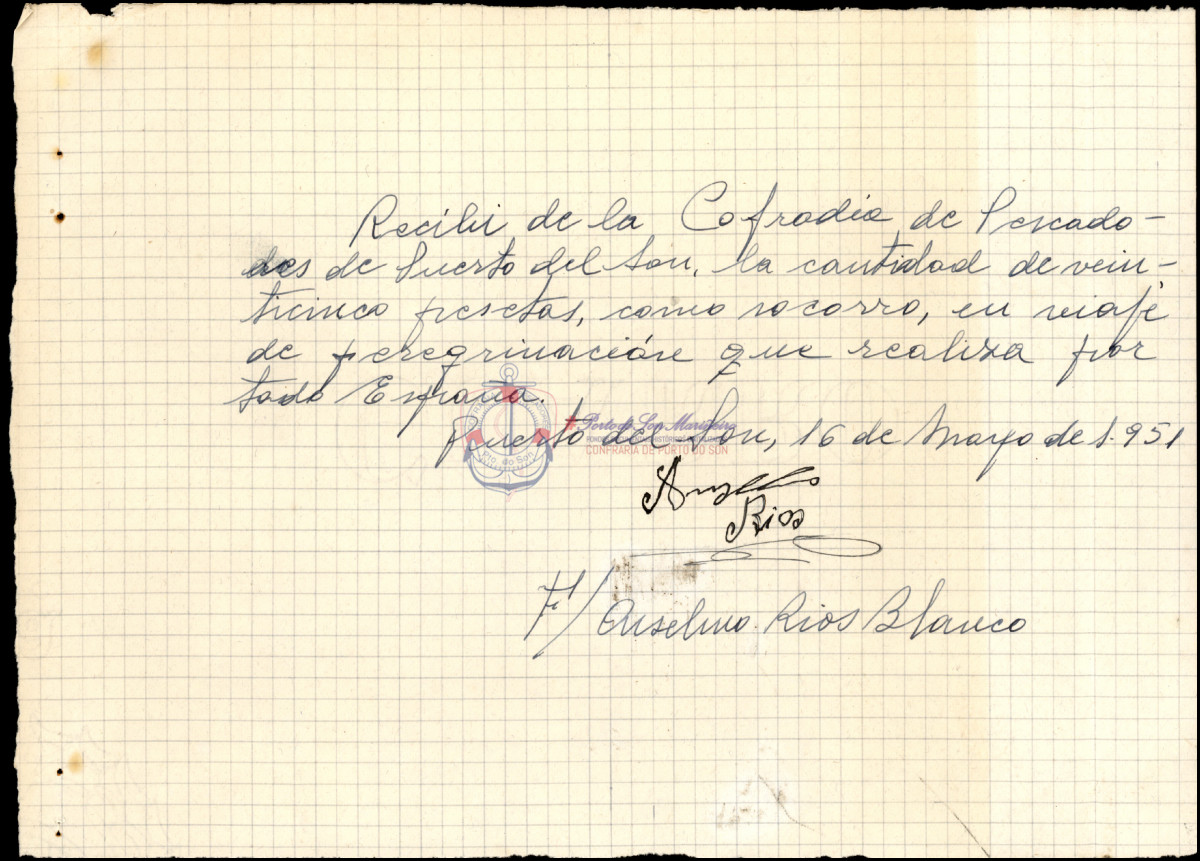 Recibi de la Cofradia de Pescado-
des de Puerto del Son, la cantidad de vein-
ticinco pesetas, como socorro, en viaje
de peregrinación que realiza por
toda España.
Puerto del Son, 16 de Mayo de 1.951
Porto do Son Mariñeiro
CONFRARIA DE PORTO DO SON
Pto. do Son
Anselmo
Rios
F/ Anselmo Rios Blanco